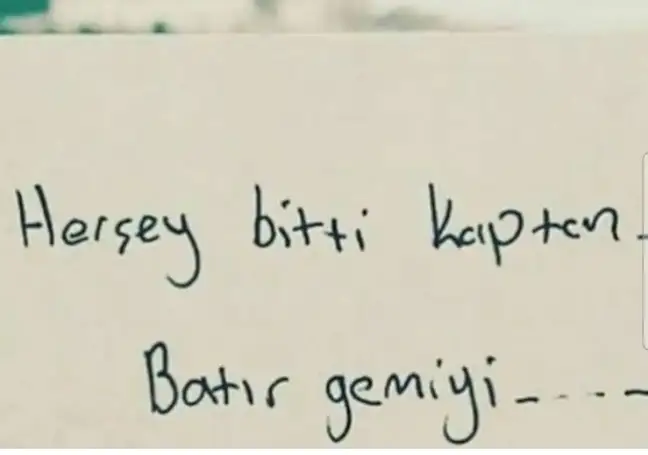 Herşey bitti kaptan.
Batır gemiyi-----